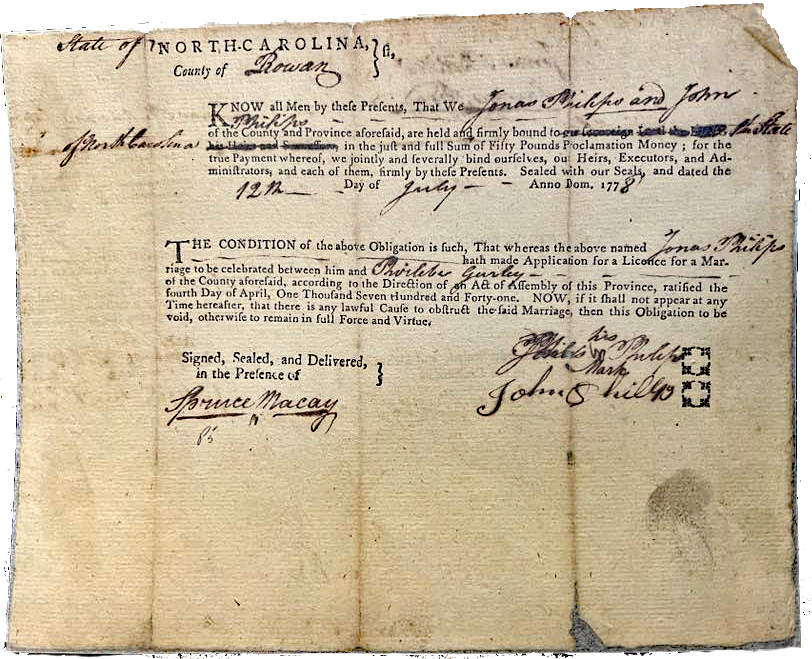 State of NORTH-CAROLINA, } ſs,
County of Rowan
KNOW all Men by theſe Preſents, That We Jonas Philips and John
Philips
of the County and Province aforeſaid, are held and firmly bound to our Sovereign Lord the King, the State
of North Carolina his Heirs and Succeſſors, in the juſt and full Sum of Fifty Pounds Proclamation Money ; for the
true Payment whereof, we jointly and ſeverally bind ourſelves, our Heirs, Executors, and Ad-
miniſtrators, and each of them, firmly by theſe Preſents. Sealed with our Seals, and dated the
12th Day of July Anno Dom. 1778
THE CONDITION of the above Obligation is ſuch, That whereas the above named Jonas Philips
hath made Application for a Licence for a Mar-
riage to be celebrated between him and Gurley
of the County aforeſaid, according to the Direction of an Act of Aſſembly of this Province, ratified the
fourth Day of April, One Thouſand Seven Hundred and Forty-one. NOW, if it ſhall not appear at any
Time hereafter, that there is any lawful Cauſe to obſtruct the ſaid Marriage, then this Obligation to be
void, otherwiſe to remain in full Force and Virtue.
his
Philips
Mark
Signed, Sealed, and Delivered, }
in the Preſence of
Spruce Macay
John Philips